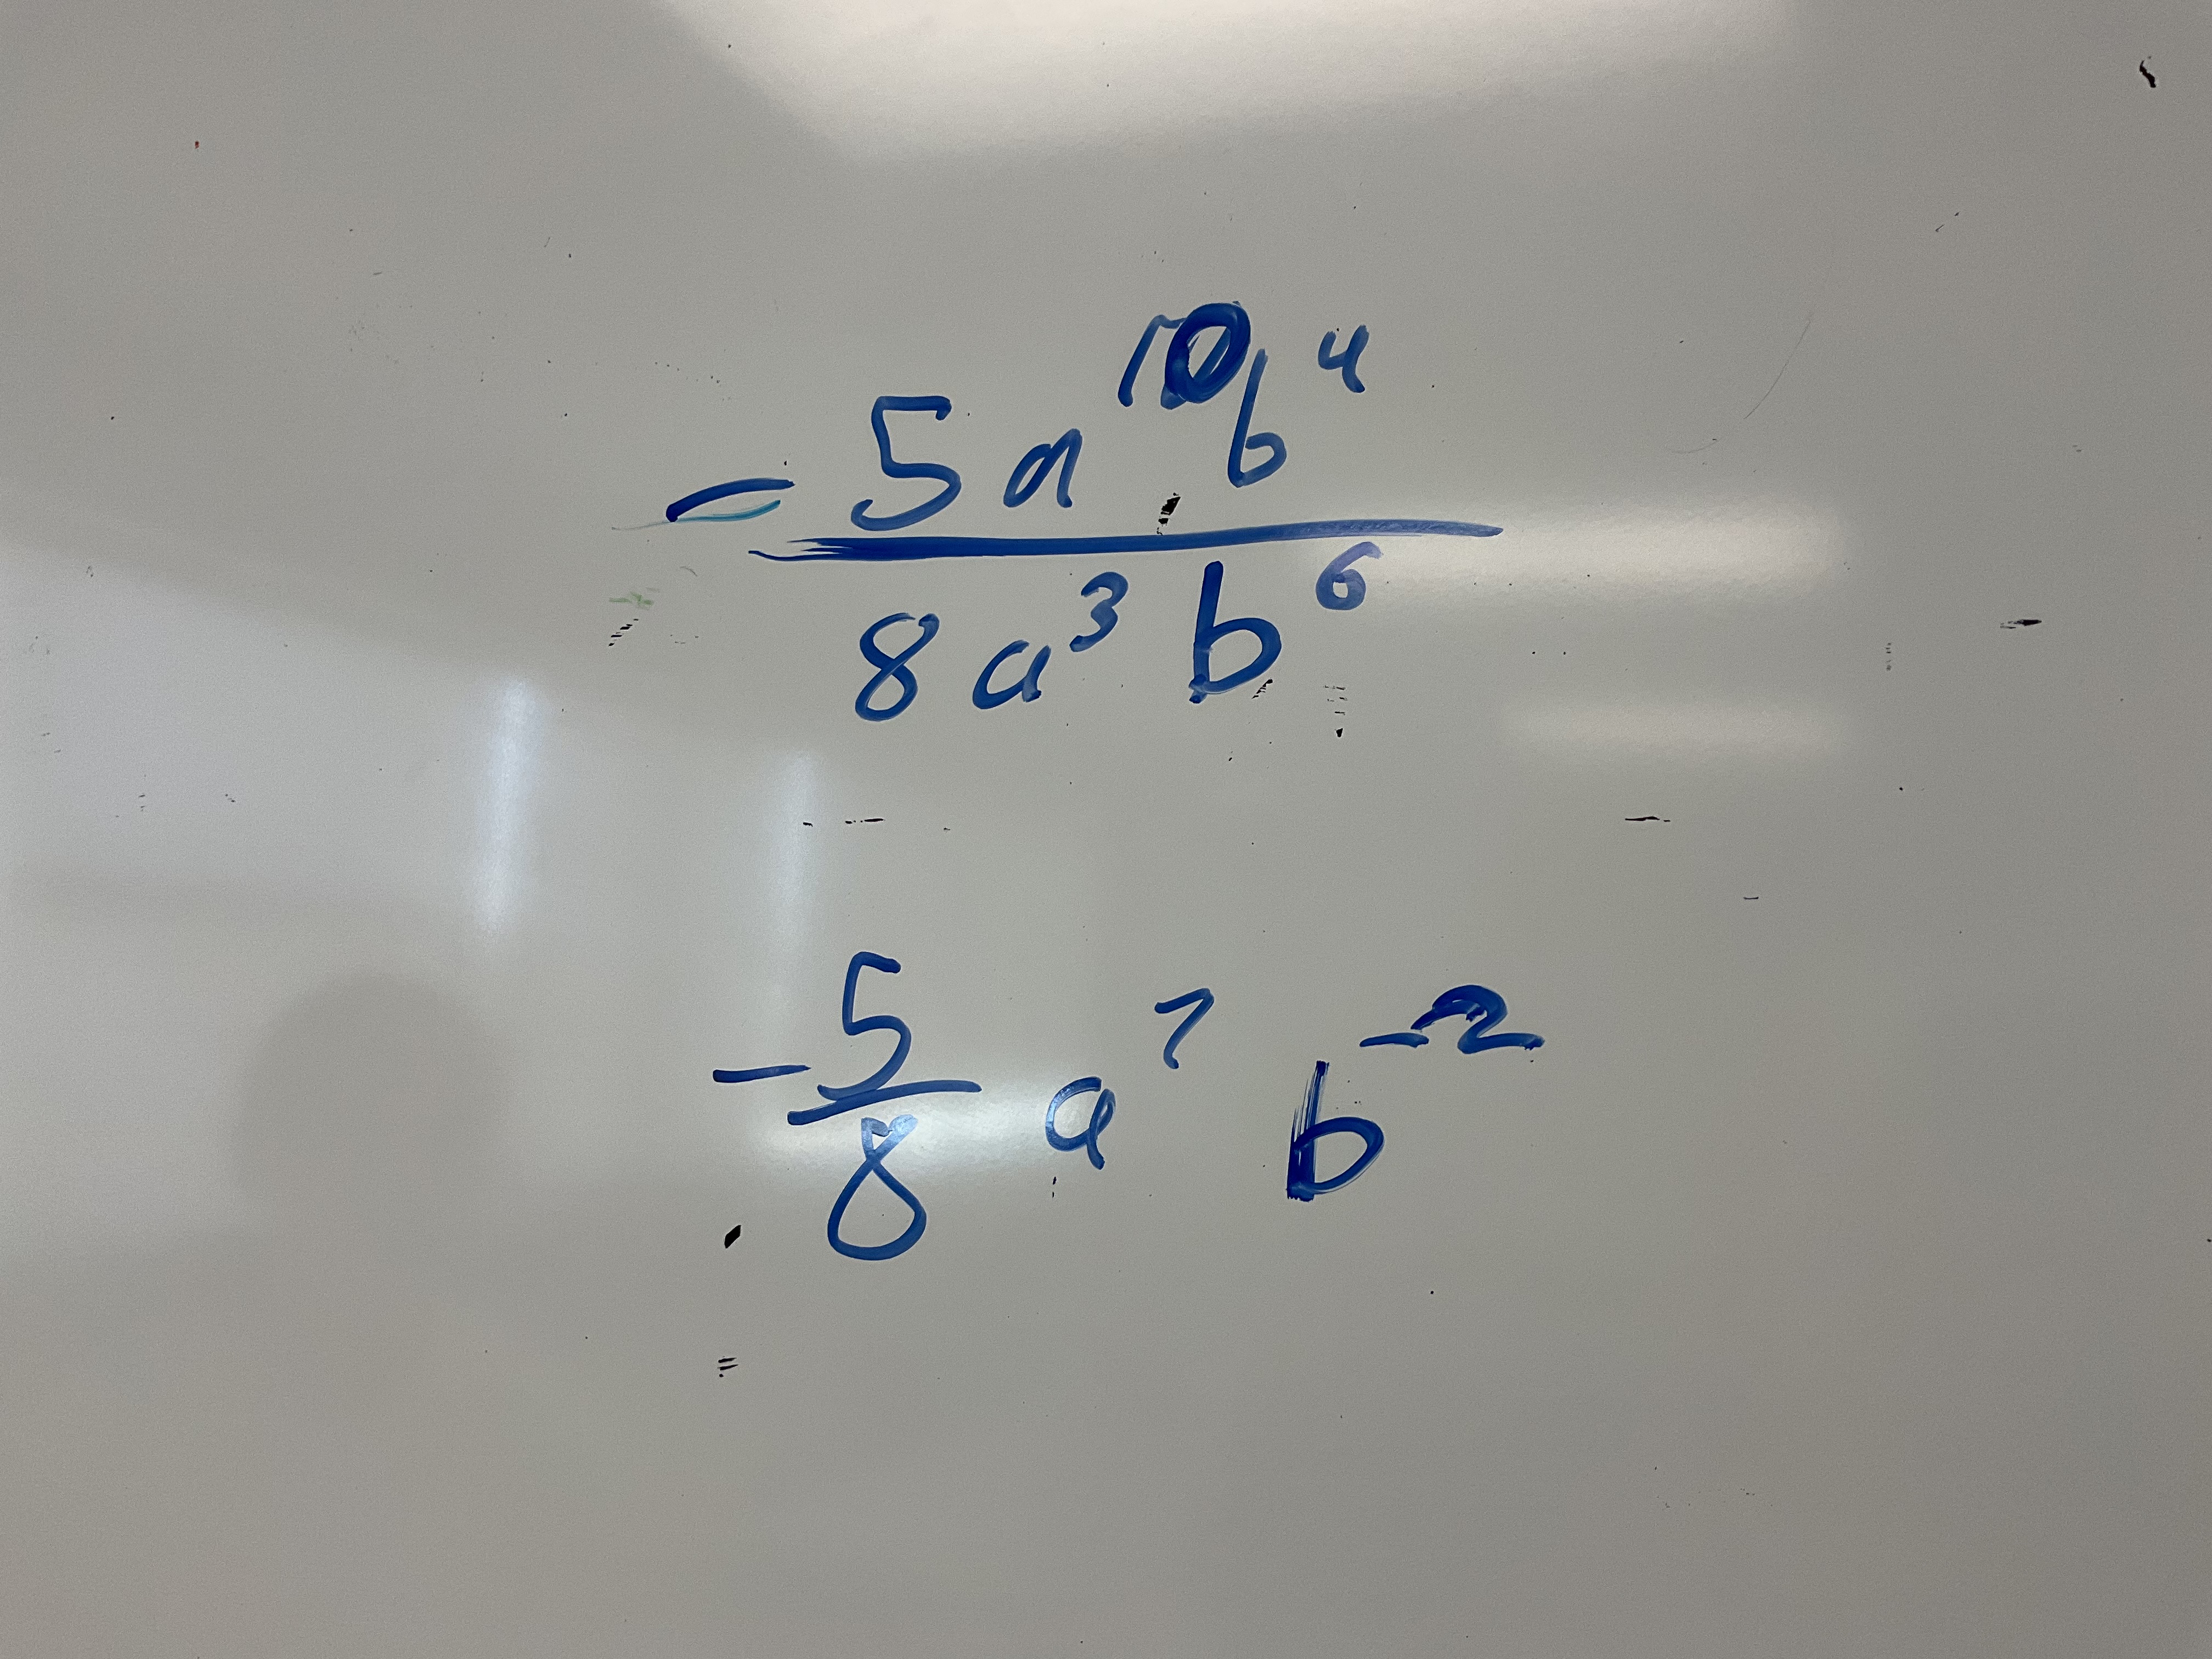 -5a¹⁰b⁴
8a³b⁶
-5/8 a⁷ b⁻²